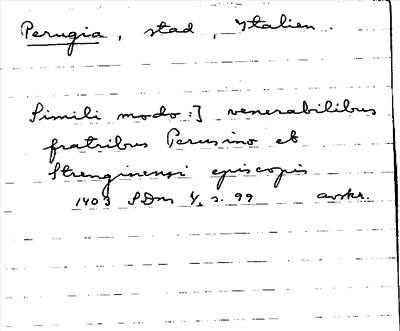 Perugia, stad, Italien.
Simili modo :] venerabilibus
fratribus Perusino et
Strenginensi episcopis
1403 SDns 1, s. 99 avskr.